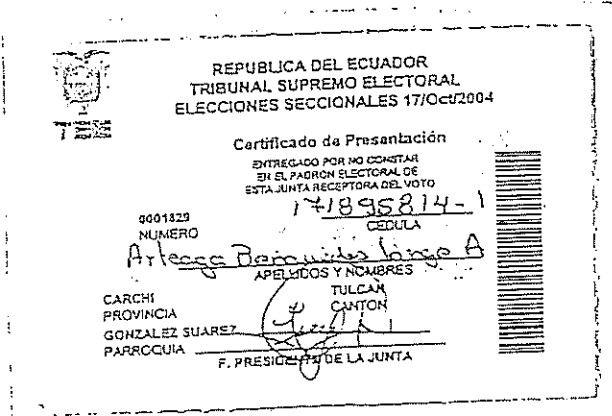 REPUBLICA DEL ECUADOR
TRIBUNAL SUPREMO ELECTORAL
ELECCIONES SECCIONALES 17/Oct/2004
Certificado de Presentación
ENTREGADO POR NO CONSTAR
EN EL PADRON ELECTORAL DE
ESTA JUNTA RECEPTORA DEL VOTO
171895814-1
0001829
CEDULA
NUMERO
Arteaga Jorge A
APELLIDOS Y NOMBRES
CARCHI TULCAN
PROVINCIA CANTON
GONZALEZ SUAREZ
PARROQUIA
F. PRESIDENTE DE LA JUNTA